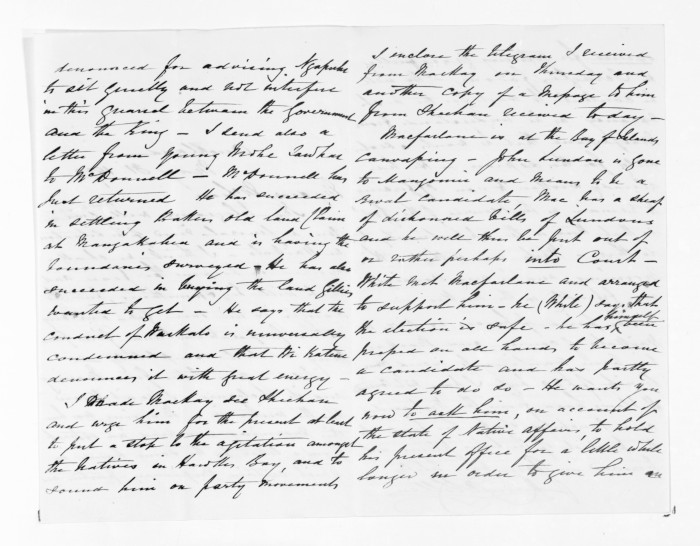 denounced for advising Ngapuhi
to sit quietly and not interfere
in this quarrel between the Government
and the King — I send also a
letter from young Mohi Tawhai
to McDonnell — McDonnell has
just returned He has succeeded
in settling Bakers old land claim
at Mangakahia and is having the
boundaries surveyed He has also
succeeded in buying the land Gillies
wanted to get — He says that the
conduct of Waikato is universally
condemned and that Wi Katene
denounces it with great energy —
I made Mackay see Sheehan
and urge him for the present at least
to put a stop to the agitation amongst
the Natives in Hawkes Bay, and to
sound him on party movements
I enclose the telegram I received
from Mackay on Thursday and
another copy of a Message to him
from Sheehan received to-day —
Macfarlane is at the Bay of Islands
Canvassing — John Lundon is gone
to Mangonui and means to be a
rival candidate, Mac has a heap
of dishonored Bills of Lundons
and he will thus be put out of
or rather perhaps into Court —
White met Macfarlane and arranged
to support him — he (White) says that
the election is safe — he has himself been
pressed on all hands to become
a candidate and has partly
agreed to do so — He wants you
now to ask him, on account of
the state of Native affairs, to hold
his present office for a little while
longer in order to give him an